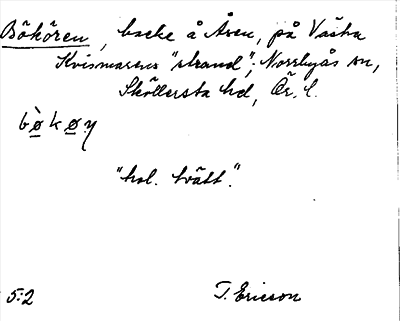 Bökören, backe å Åsen, på Västra
Kvismarens "strand"; Norrbyås sn,
Sköllersta hd, Ör. l.
bø̀kø.y
"tvätt."
5:2
T. Ericson